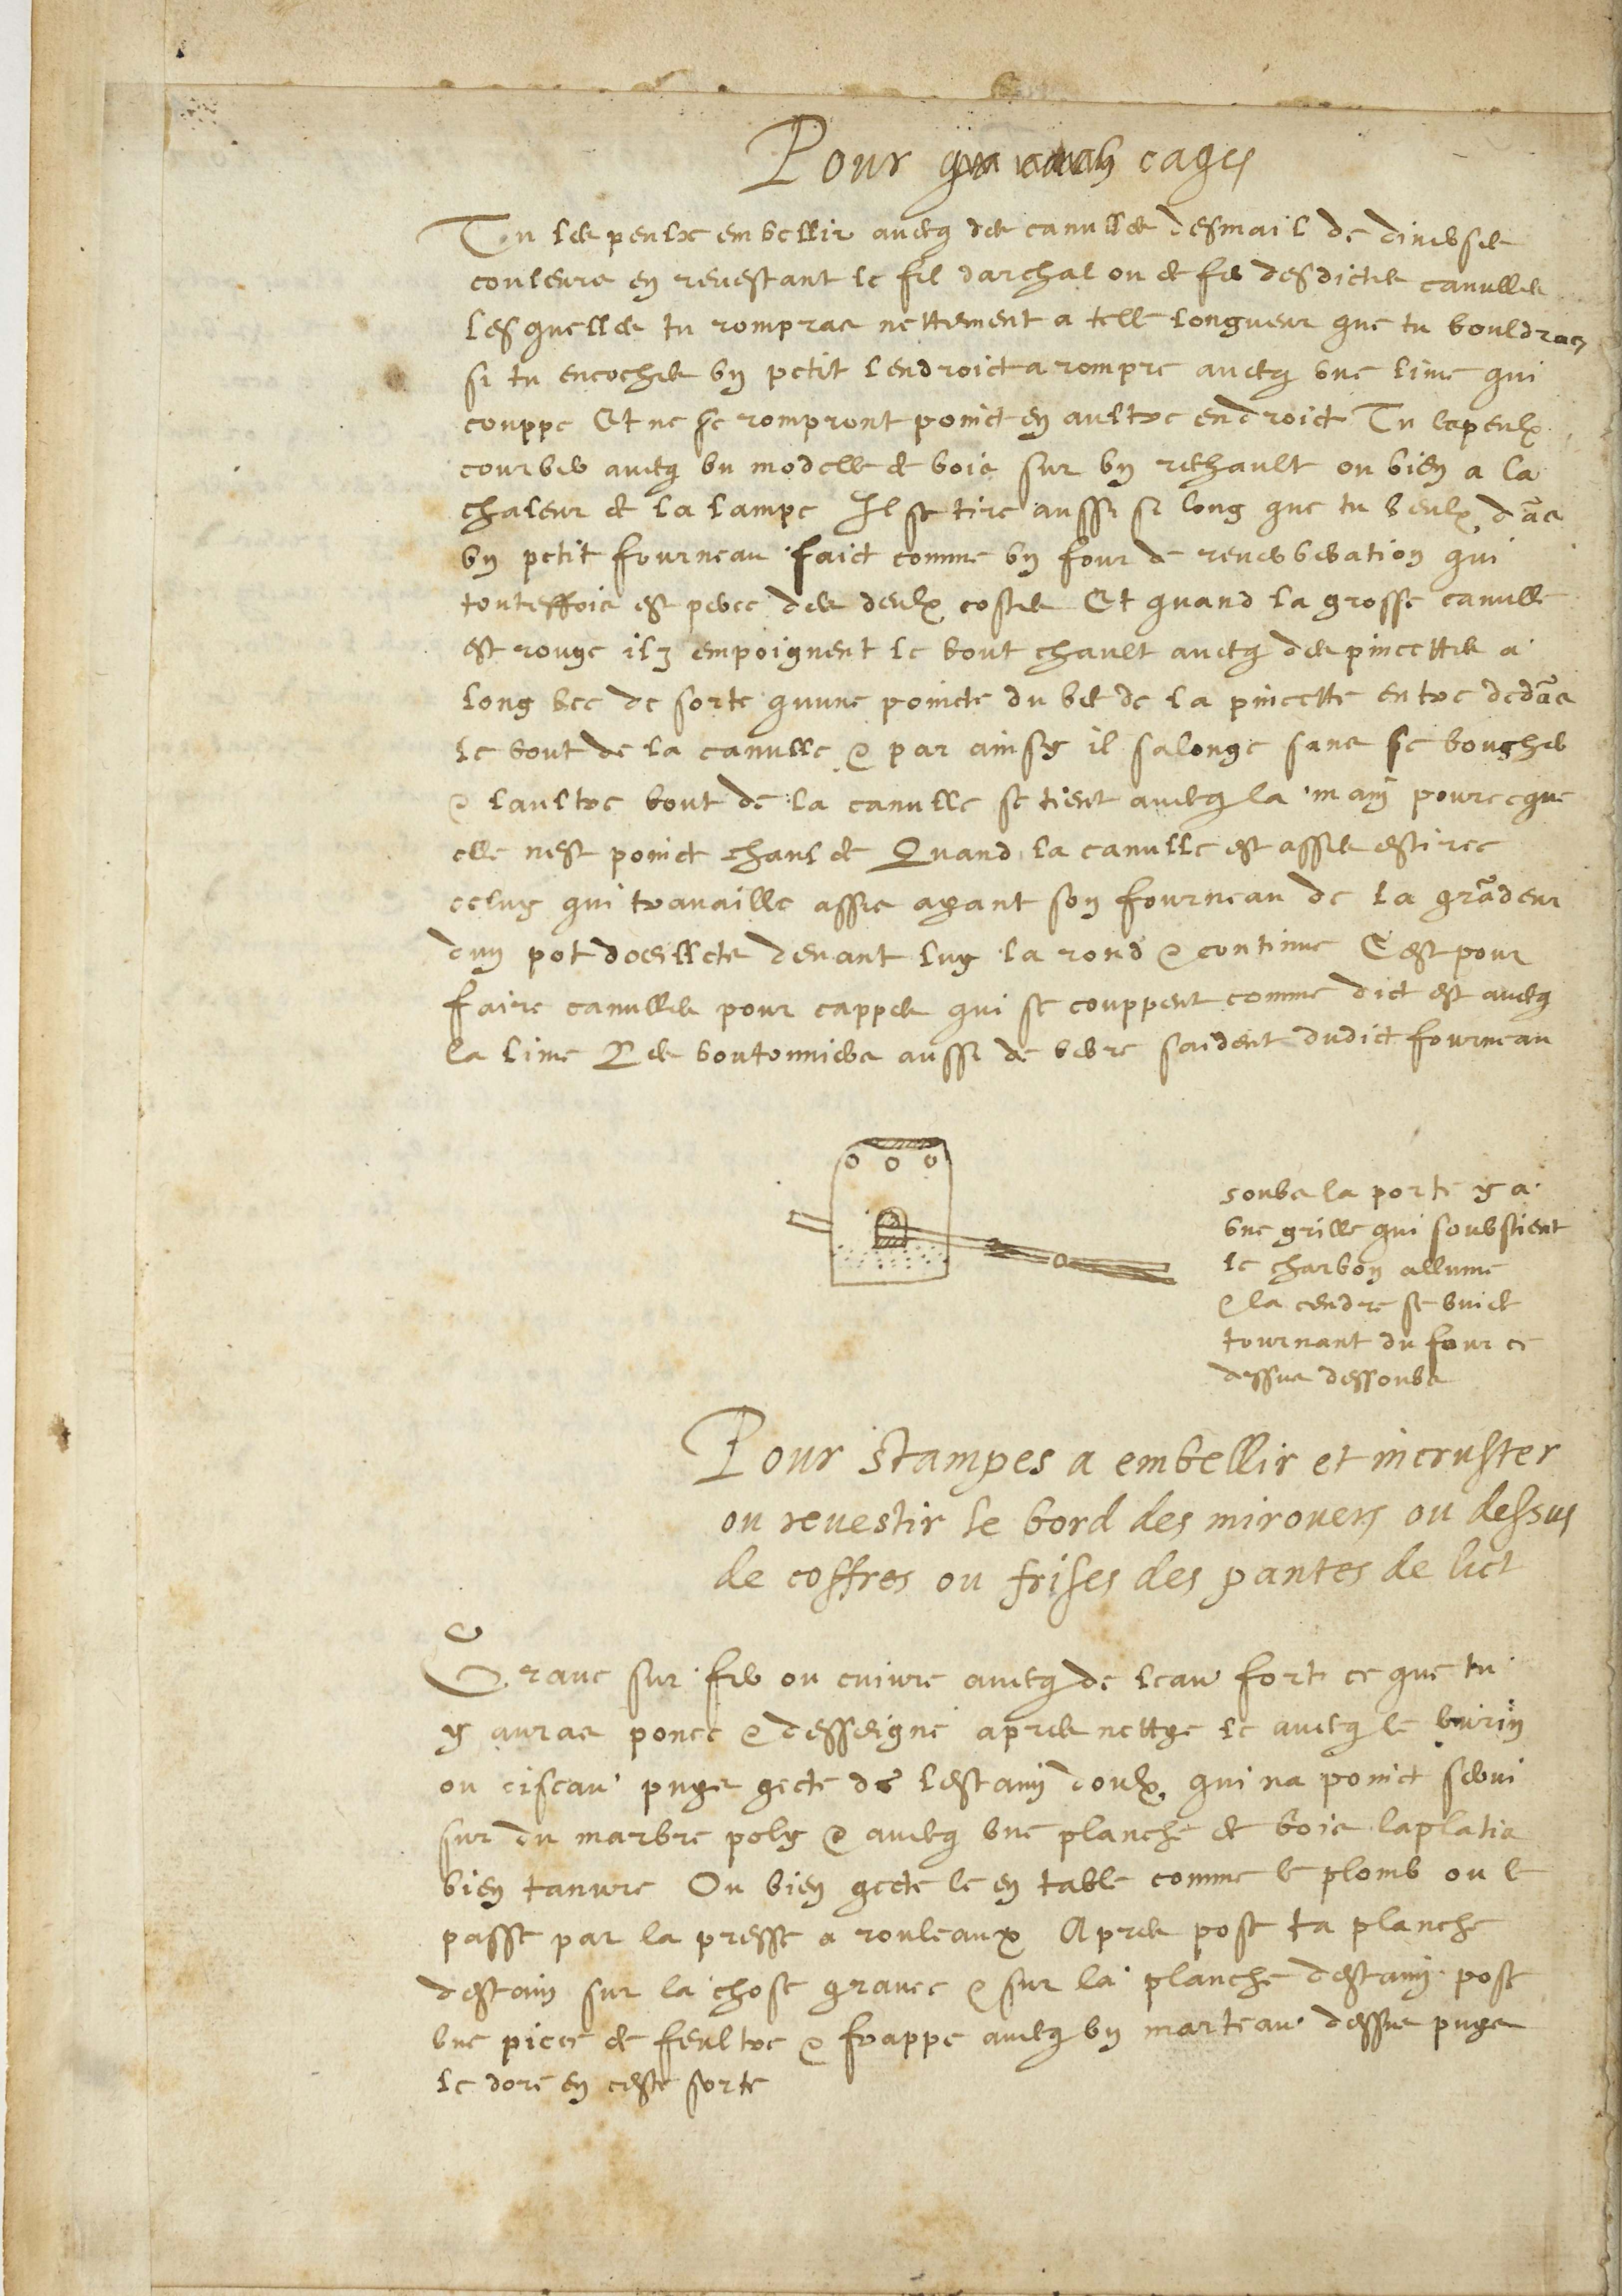 Pour cages
Tu les peulx embellir avecq des canulles desmail de diverses
couleurs en revestant le fil darchal ou de fer desdictes canulles
lesquelles tu rompras nettement a telle longueur que tu vouldras
si tu encoches un petit lendroict a rompre avecq une lime qui
couppe Et ne se rompront poinct en aultre endroict Tu les peulx
courber avecq un modelle de bois sur un rechault ou bien a la
chaleur de la lampe Il se tire aussi si long que tu veulx dãs
un petit fourneau faict comme un four de reverberation qui
touteffois est perce des deulx costes Et quand la grosse canulle
est rouge ilz empoignent le bout chault avecq des pincettes a
long bec de sorte quune poincte du bec de la pincette entre dedãs
le bout de la canulle & par ainsy il salonge sans se boucher
& laultre bout de la canulle se tient avecq la main pource que
elle nest poinct chaulde Quand la canulle est asses estiree
celuy qui travaille assis ayant son fourneau de la grãdeur
dun pot doeillets devant luy la rond & continue Cest pour
faire canulles pour cappes qui se couppent comme dict est avecq
la lime Les boutonniers aussi de verre saident dudict fourneau
soubs la porte y a
une grille qui soubstient
le charbon allume
& la cendre se vuide
tournant du four ce
dessus dessoubs
Pour stampes a embellir et incruster
ou revestir le bord des mirouers ou dessus
de coffres ou frises des pantes de lict
Grave sur fer ou cuivre avecq de leau fort ce que tu
y auras ponce & desseigne apres nettye le avecq le burin
ou ciseau puys gecte de lestain doulx qui na poinct servi
sur du marbre poly & avecq une planche de bois laplatis
bien tanvre Ou bien gecte le en table comme le plomb ou le
passe par la presse a rouleaux Apres pose ta planche
destain sur la chose gravee & sur la planche destain pose
une piece de feultre & frappe avecq un marteau dessus puys
le dore en ceste sorte